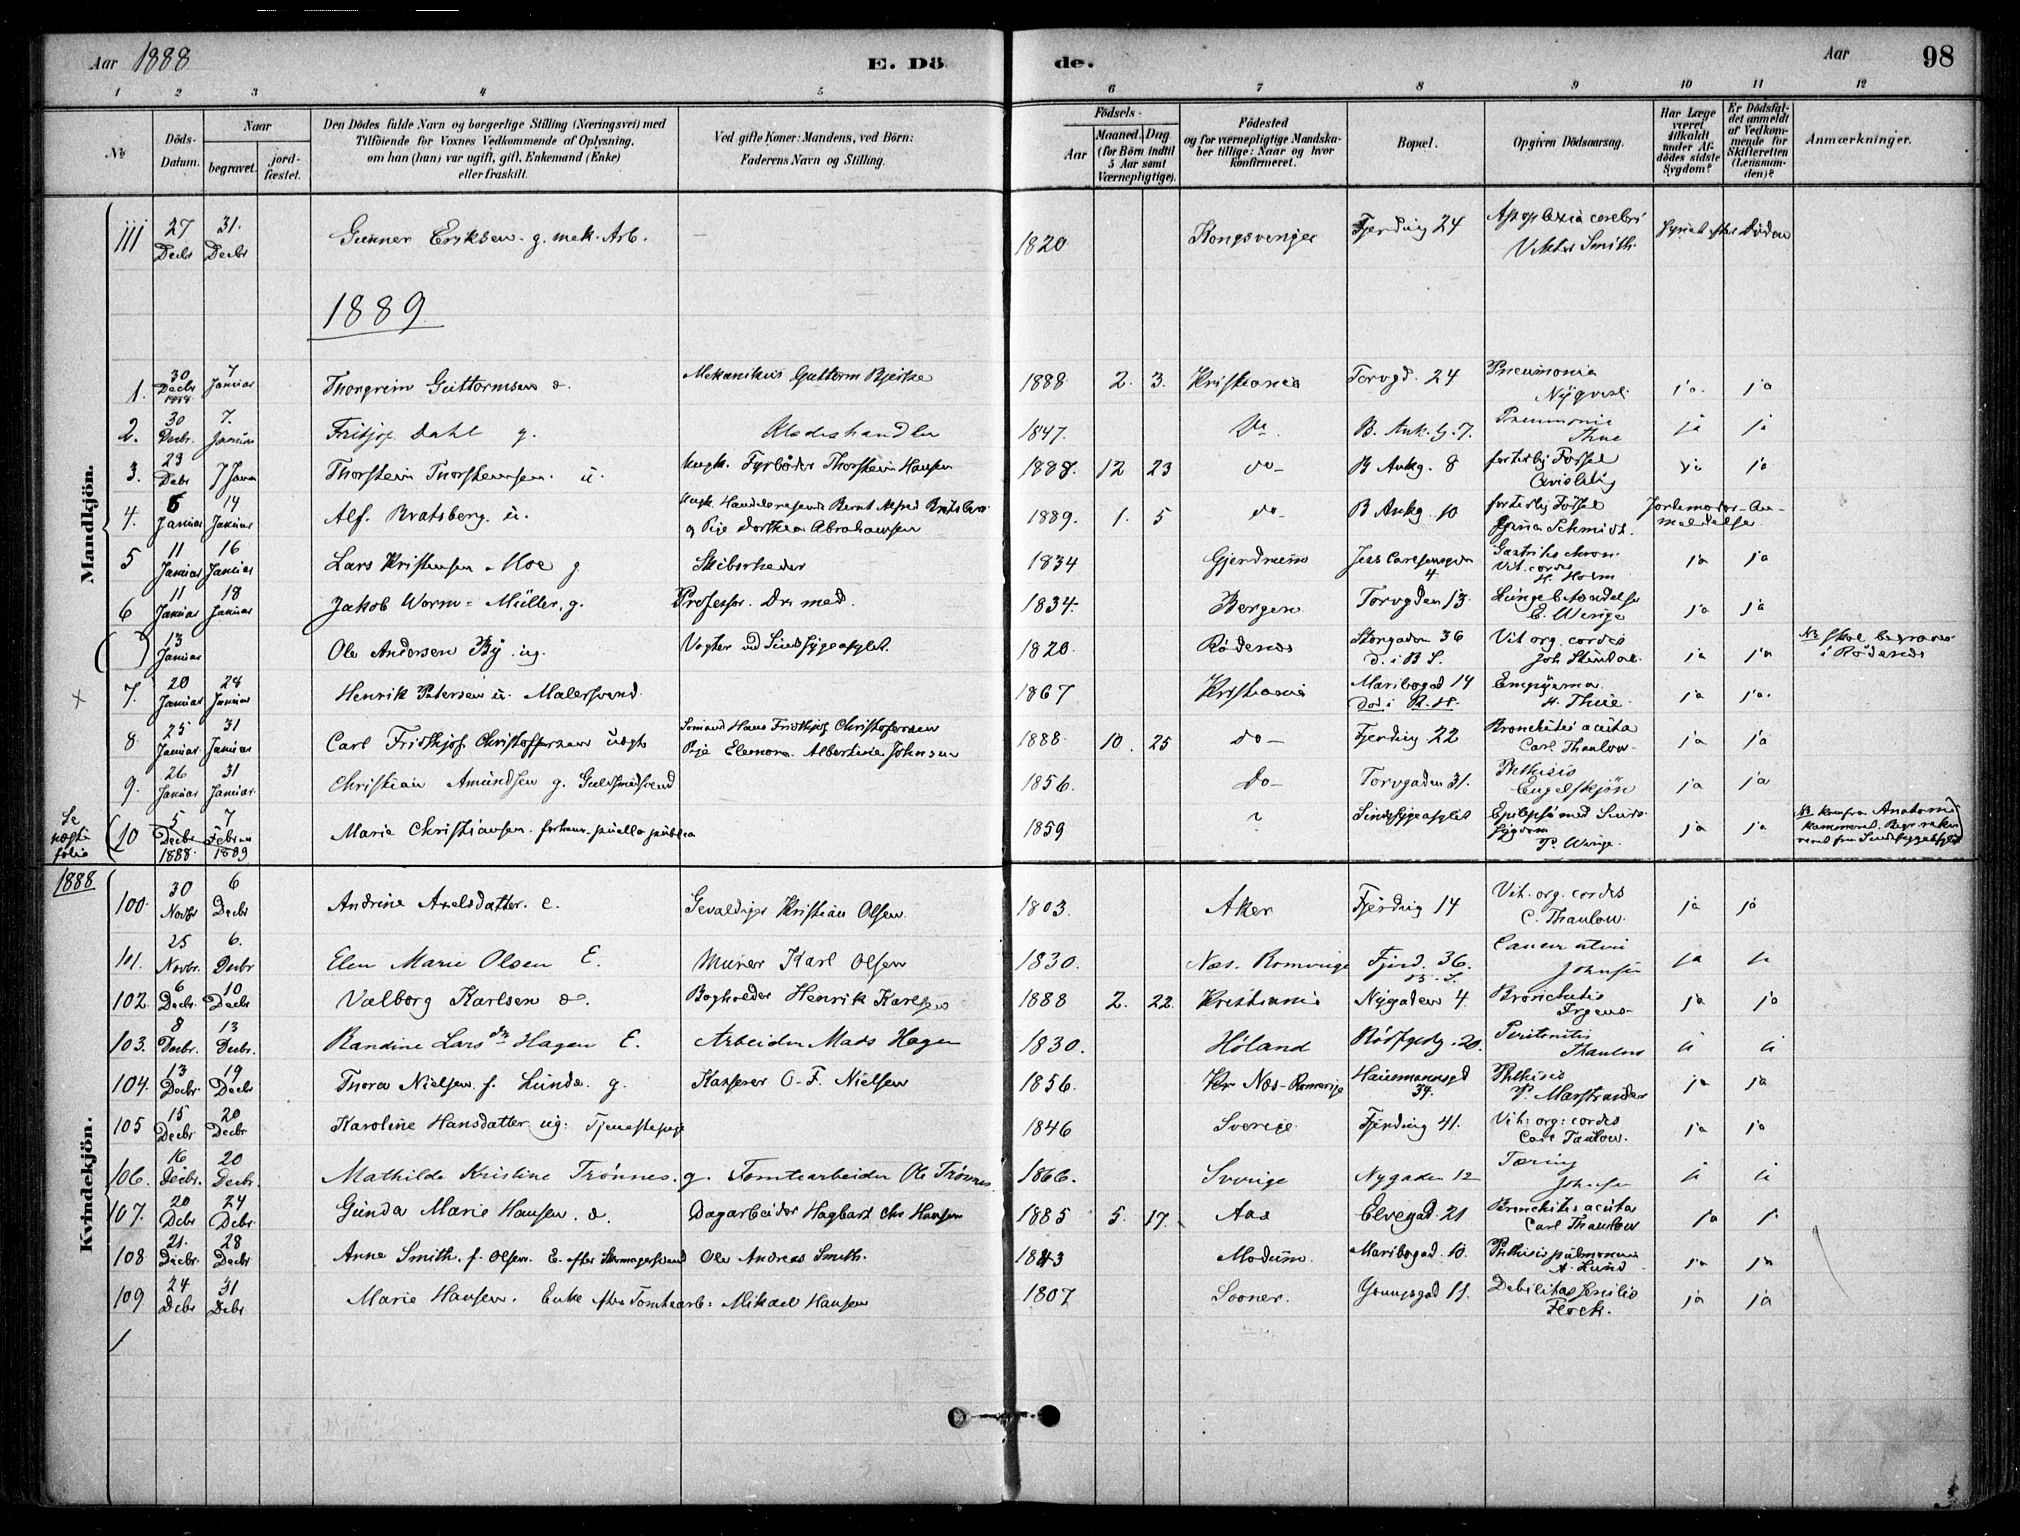 Aar 1888
E. Dö de.
Aar
98
1 2 3 4 5 6 7 8 9 10 11 12
No
Döds-Datum.
Naar
begravet. jord-fæstet.
Den Dödes fulde Navn og borgerlige Stilling (Næringsvei) med
Tilföiende for Voxnes Vedkommende af Oplysning,
om han (hun) var ugift, gift, Enkemand (Enke)
eller fraskilt.
Ved gifte Koner: Mandens, ved Börn:
Faderens Navn og Stilling.
Födsels-
Aar
Maaned. Dag.
(for Börn indtil 5 Aar samt Værnepligtige).
Födested
og for værnepligtige Mandska-
ber tillige: Naar og hvor
konfirmeret.
Bopæl.
Opgiven Dödsaarsag.
Har Læge været tilkaldt under Af-dödes sidste Sygdom?
Er Dödsfal-det anmeldt af Vedkom-mende for Skifteretten (Lensman-den)?
Anmærkninger.
Mandkjön.
111 27 Decbr 31. Decbr Gunner Eriksen. g. mek. Arb. — 1820 Kongsvinger Fjerding 24 Apoplexia cerebri Smith. Synet efter Döden
1889
1. 30 Decbr 1888 7 Januar Thorgrim Guttormsen d. Mekanikus Guttorm Bjerke 1888 2. 3. Kristiania Torvgd. 24 Pneumonia ja. ja
2. 30 Decbr. 7. Januar Fritjof Dahl g. Klædeshandler 1847. Do B. Ank. g. 7. Pneumonia Thue ja ja
3. 23 Debr 7 Janr Thorstein Thorstensen. u. uægt. Fyrböder Thorstein Hansen 1888. 12 23 do— B Ankg. 8 fortidlig Fossel Qvisling ja ja
4. 5 Januar 14 Januar Alf. Bratsberg. u. uægt. Handelsreisende Bernt Alfred Bratsberg
og Pige Dorthea Abrahamsen 1889. 1. 5 do— B Ankg. 10 fortidlig Fössel Schmidt. Jordemoder-Anmeldelse
5 11 Januar 16 Januar Lars Kristensen Moe g Skibsrheder 1834 Gjerdrum Jess Carlsensgden 4. Gastritis chron. Vit. cordis H. Holm ja ja
6 11 Januar 18 Januar Jakob Worm-Müller, g. Professor. Dr. med. 1834. Bergen Torvgden 13. Lungebetændelse E. Winge ja ja
( ) 13 Januar Ole Andersen By. ug. Vogter ved Sindssygeasylet. 1820. Rödenes Storgaden 36 d. i B S. Vit org. cordis ja ja NB skal begraves i Rödenes
7. 20 Januar 24 Januar Henrik Petersen u. Malersvend. 1867 Kristiania Maribogad 14 Död i R. H. Empyema. H. Thue ja ja.
8 25 Januar. 31 Januar Carl Fridthjof Christoffersen uægt Sömand Hans Fridthjof Christofersen
Pige Elenora Albertine Johnsen 1888 10. 25 do— Fjerding 22 Bronchitis acuta Carl Thaulow. ja ja
9. 26 Januar 31 Januar. Christian Amundsen g. Guldsmedsvend 1856. Do— Torvgaden 31. Phthisis Engelskjön ja ja
Se næste folio
10 5 Decbr 1888. 7 Februar 1889 Marie Christiansen. forhenv. puella publica 1859 ? Sindssygeasylet Epilepsi med Sindssygdom P. Winge. ja ja
Kvindekjön.
1888
100. 30 Novbr 6 Decbr Andrine Axelsdatter. E. Gevaldiger Kristian Olsen 1803. Aker Fjerding 14 Vit. org. cordis C. Thaulow. ja ja
101. 25 Novbr. 6. Decbr Elen Marie Olsen E. Murer Karl Olsen 1830. Næs. Romerige Fjerd. 36. B. S. Cancer uteri Johnsen ja ja
102. 6 Decbr. 10 Decbr Valborg Karlsen d. Bogholder Henrik Karlsen 1888 2. 22. Kristiania Nygaden 4. Bronchitis Irgens ja ja
103. 8 Decbr. 13 Decbr. Randine Larsdtr Hagen E. Arbeider Mads Hagen 1830. Höland 20. Peritonitis Thaulow ja ja
104. 13 Decbr. 19 Decbr Thora Nielsen f. Lunde. g. Kasserer O. F. Nielsen 1856. Næs-Romerige Hausmannsgd 39. Phthisis P. Marstrander ja ja
105 15 Decbr 20 Decbr. Karoline Hansdatter ug: Tjenestepige 1846 Sverige. Fjerding 41. Vit: org: cordis Carl Taulow. ja ja
106. 16 Decbr. 20 Decbr. Mathilde Kristine Trönnes. g. Tomtearbeider Ole Trönnes. 1866. Sverige Nygaden 12 Tæring Johnsen ja ja
107. 20 Decbr 24 Decbr. Gunda Marie Hansen. d. Dagarbeider Hagbart Chr Hansen 1885 5. 17. Aas Elvegad. 21 Bronchitis acuta Carl Thaulow ja ja
108 21. Decbr. 28 Decbr. Anne Smith. f. Olsen. E. efter Skomagersvend Ole Andreas Smith. 1843 Modum. Maribogad. 10. Phthisis pulmonum A. Lund ja ja
109 24 Debr 31 Debr Marie Hansen. Enke efter Tomtearb: Mikael Hansen 1807 Sooner. Youngsgad 11. Debilitas senilis Flock. ja ja